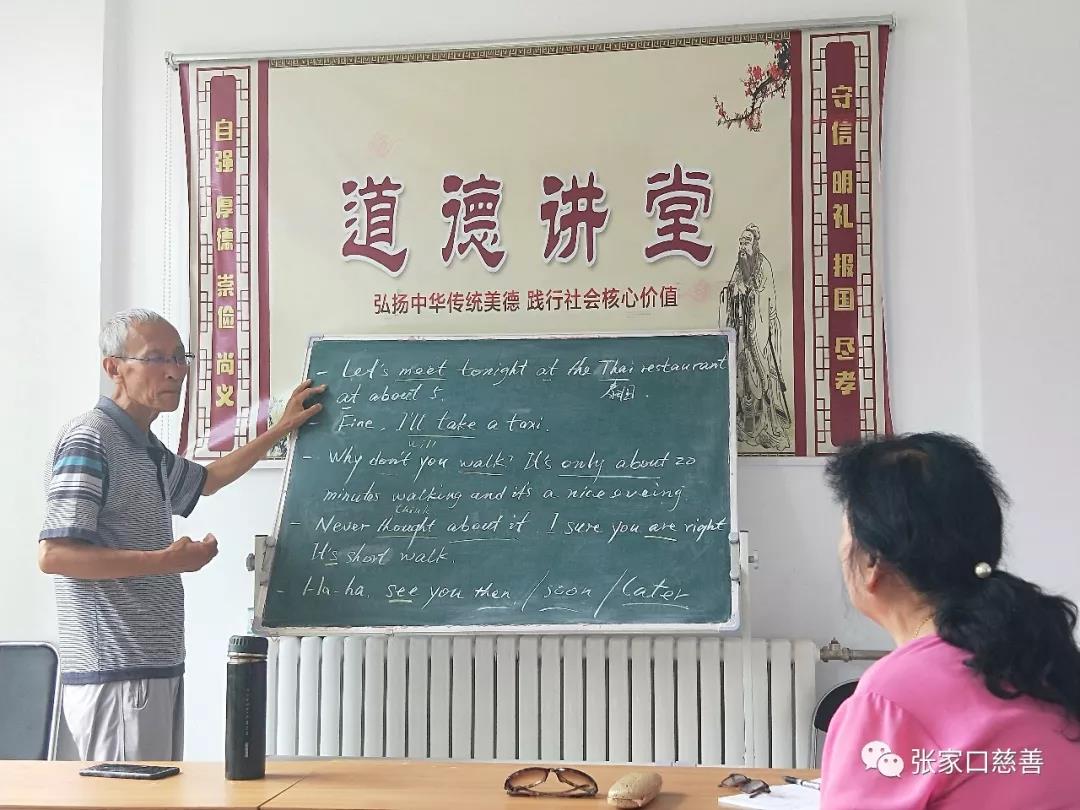 自强 厚德 崇俭 尚义
守信 明礼 报国 尽孝
道德讲堂
弘扬中华传统美德 践行社会核心价值
- Let's meet tonight at the Thai restaurant
泰国.
at about 5.
- Fine, I'll take a taxi.
will
- Why don't you walk? It's only about 20
minutes walking and it's a nice eveing.
think
- Never thought about it. I sure you are right
It's short walk.
- Ha-ha, see you then / soon / Later
张家口慈善